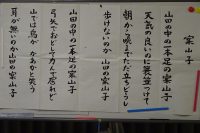 案山子
山田の中の一本足の案山子
天気の良いのに蓑笠つけて
朝から晩までただ立ちどうし
歩けないのか山田の案山子
山田の中の一本足の案山子
弓矢でおどして力んで居れど
山では烏がかあかと笑う
耳が無いのか山田の案山子